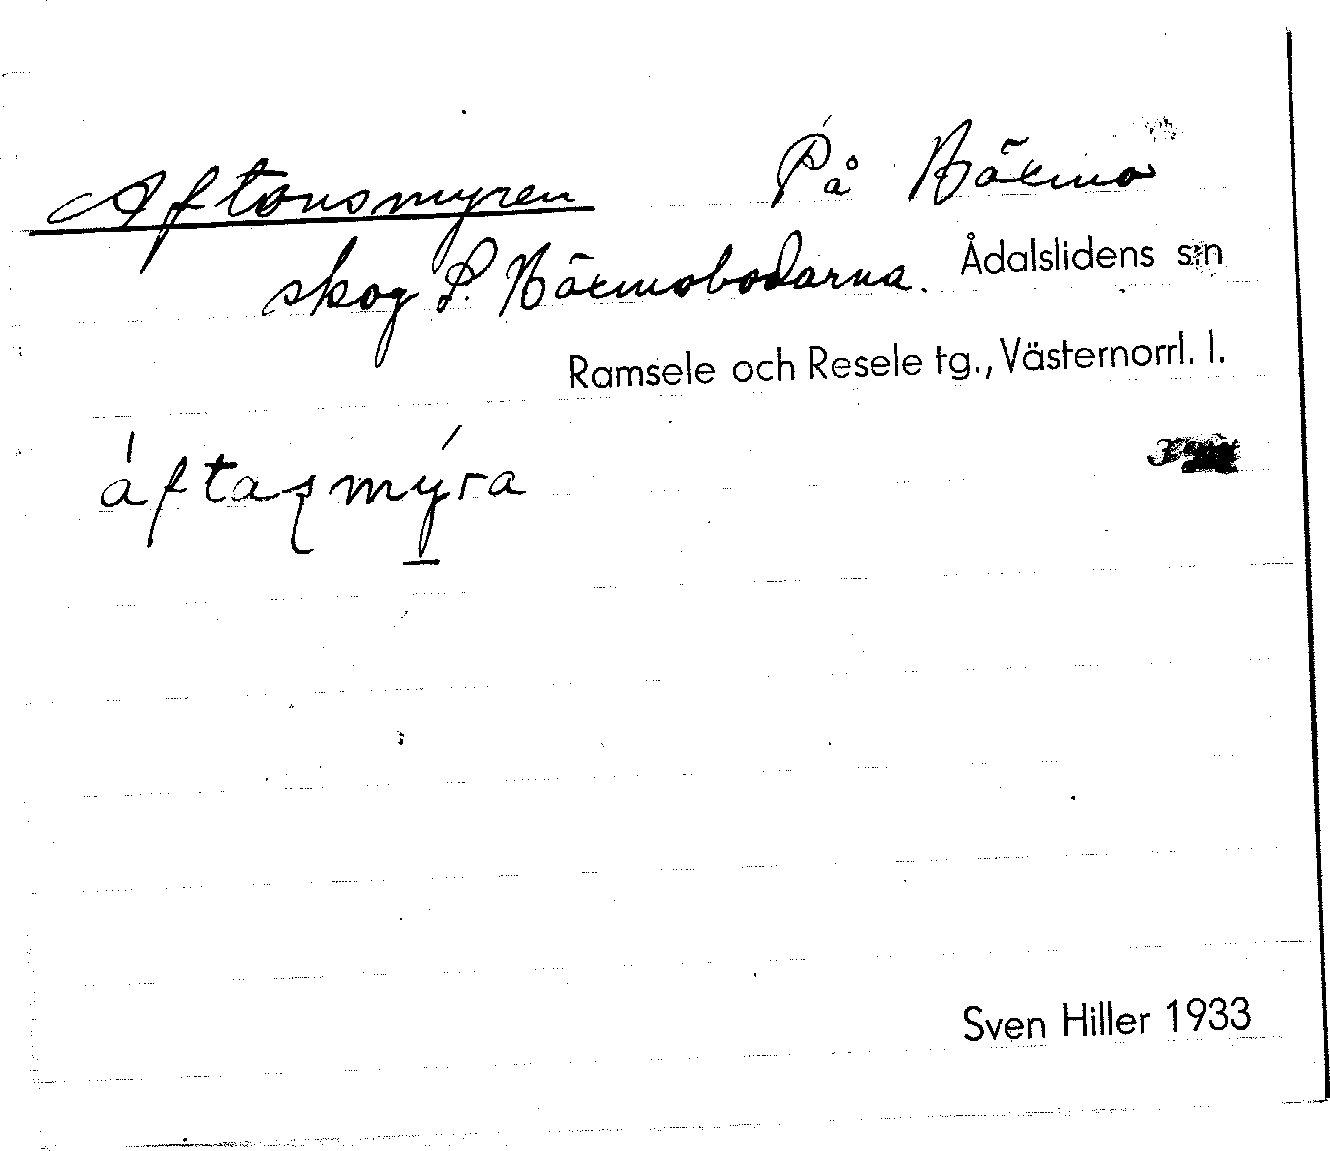 Aftonsmyren På Näsmo
skog S. Näsmobodarna. Ådalslidens s:n
Ramsele och Resele tg., Västernorrl. l.
áftasmýra
Sven Hiller 1933